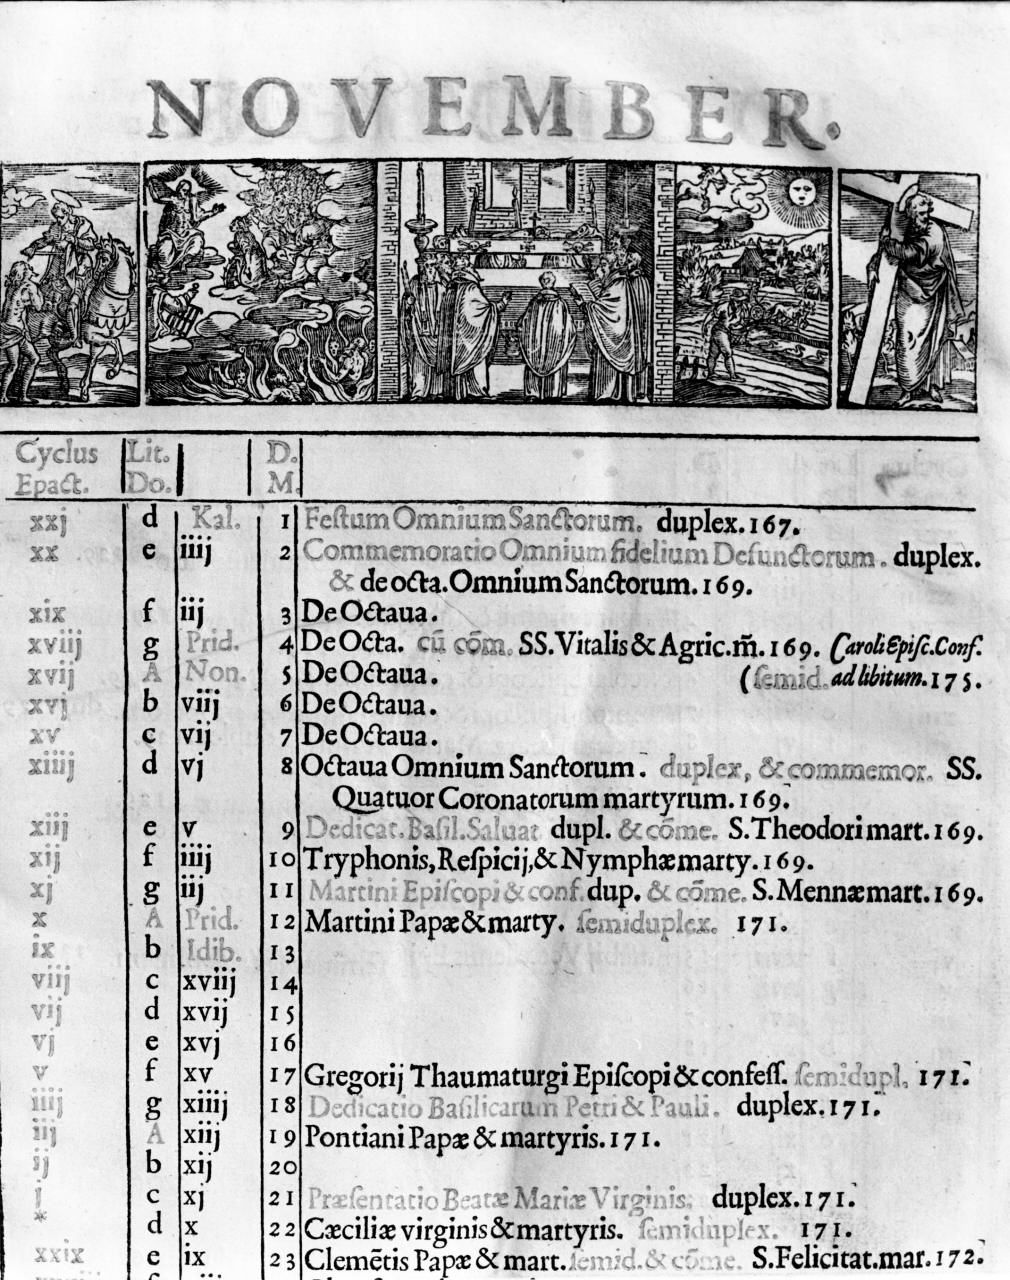 NOVEMBER.
Cyclus Epact. Lit. Do. D. M.
xxj d Kal. 1 Feſtum Omnium Sanctorum. duplex. 167.
xx e iiij 2 Commemoratio Omnium fidelium Defunctorum. duplex.
& de octa. Omnium Sanctorum. 169.
xix f iij 3 De Octaua.
xviij g Prid. 4 De Octa. cū cōm. SS. Vitalis & Agric. m̄. 169. Caroli Epiſc. Conf.
xvij A Non. 5 De Octaua. (ſemid. ad libitum. 175.
xvj b viij 6 De Octaua.
xv c vij 7 De Octaua.
xiiij d vj 8 Octaua Omnium Sanctorum. duplex, & commemor. SS.
Quatuor Coronatorum martyrum. 169.
xiij e v 9 Dedicat. Baſil. Saluat. dupl. & cōme. S. Theodori mart. 169.
xij f iiij 10 Tryphonis, Reſpicij, & Nymphæ marty. 169.
xj g iij 11 Martini Epiſcopi & conf. dup. & cōme. S. Mennæ mart. 169.
x A Prid. 12 Martini Papæ & marty. ſemiduplex. 171.
ix b Idib. 13
viij c xviij 14
vij d xvij 15
vj e xvj 16
v f xv 17 Gregorij Thaumaturgi Epiſcopi & confeſſ. ſemidupl. 171.
iiij g xiiij 18 Dedicatio Baſilicarum Petri & Pauli. duplex. 171.
iij A xiij 19 Pontiani Papæ & martyris. 171.
ij b xij 20
j c xj 21 Præſentatio Beatæ Mariæ Virginis. duplex. 171.
* d x 22 Cæciliæ virginis & martyris. ſemiduplex. 171.
xxix e ix 23 Clemētis Papæ & mart. ſemid. & cōme. S. Felicitat. mar. 172.